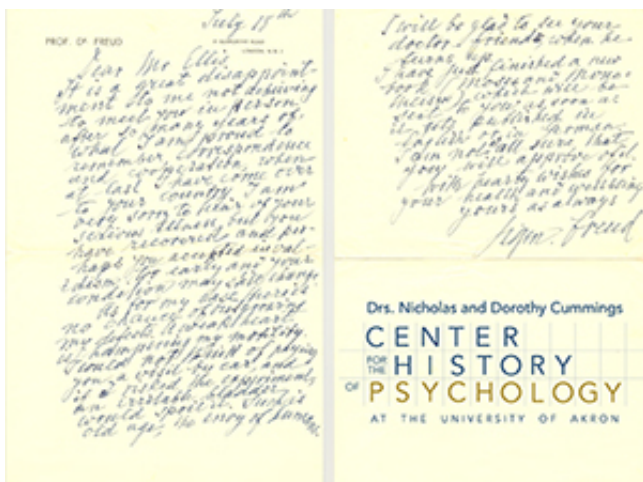 July 18th
PROF. DR. FREUD
LONDON, N.W.3.
Dear Mr Ellis
It is a great disappoint-
ment to me not
to meet you in person
after so many years of
what I am proud to
remember, correspondence
and cooperation, when
at last I have come over
to your country. I am
very sorry to hear of your
serious illness, but you
have recovered and per-
haps you accepted inval-
idism too early and your
condition may still change.
As for my case there is
no chance of outgrowing
my defects. A weak heart
is hampering my mobility.
I could not think of paying
you a visit by car, and
if I risked the experiment,
an irritable bladder
would spoil it. Such is
old age, the envy of
I will be glad to see your
doctor-friend, when he
turns up.
I have just finished a new
book, Moses and Mono-
theism, which will be
sent to you, as soon as
it gets published in
English or in German.
I am not at all sure, that
you will approve of it.
With hearty wishes for
your health and
yours as always
Sigm. Freud
Drs. Nicholas and Dorothy Cummings
CENTER
FOR THE HISTORY
OF PSYCHOLOGY
AT THE UNIVERSITY OF AKRON